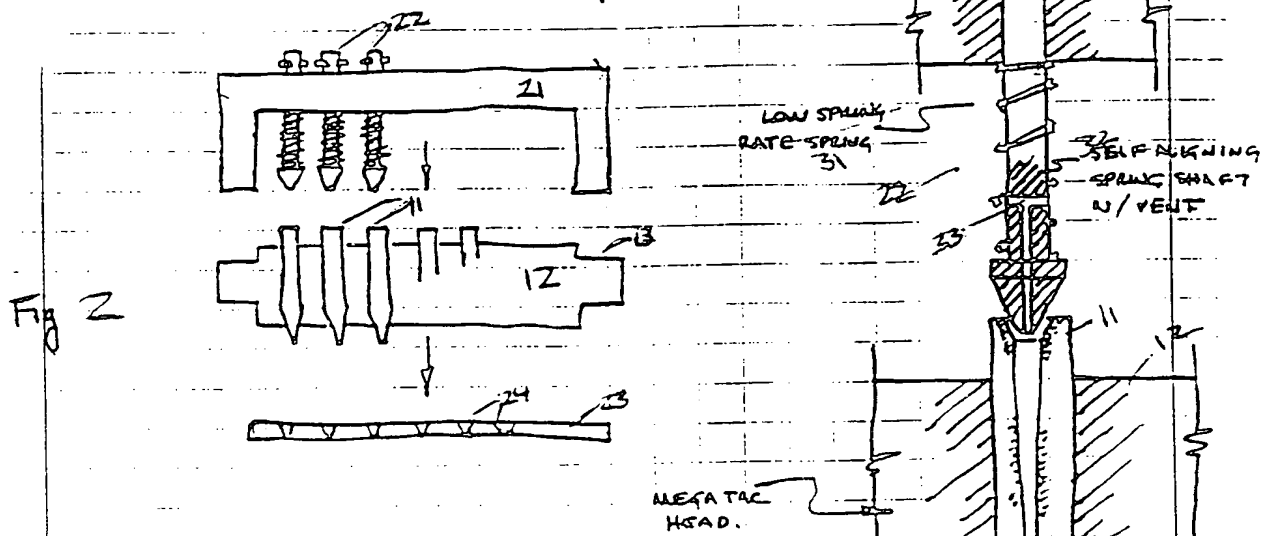 22
21
11
13
12
Fig 2
24
23
LOW SPRING
RATE SPRING
31
22
32
SELF ALIGNING
SPRING SHAFT
W/ VENT
33
11
12
MEGA TAC
HEAD.